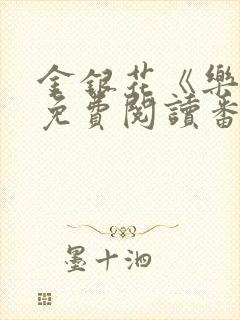 金銀花《樂
免費閱讀番
墨十泗